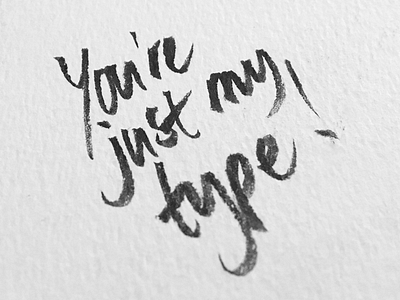 You're
just my
type!